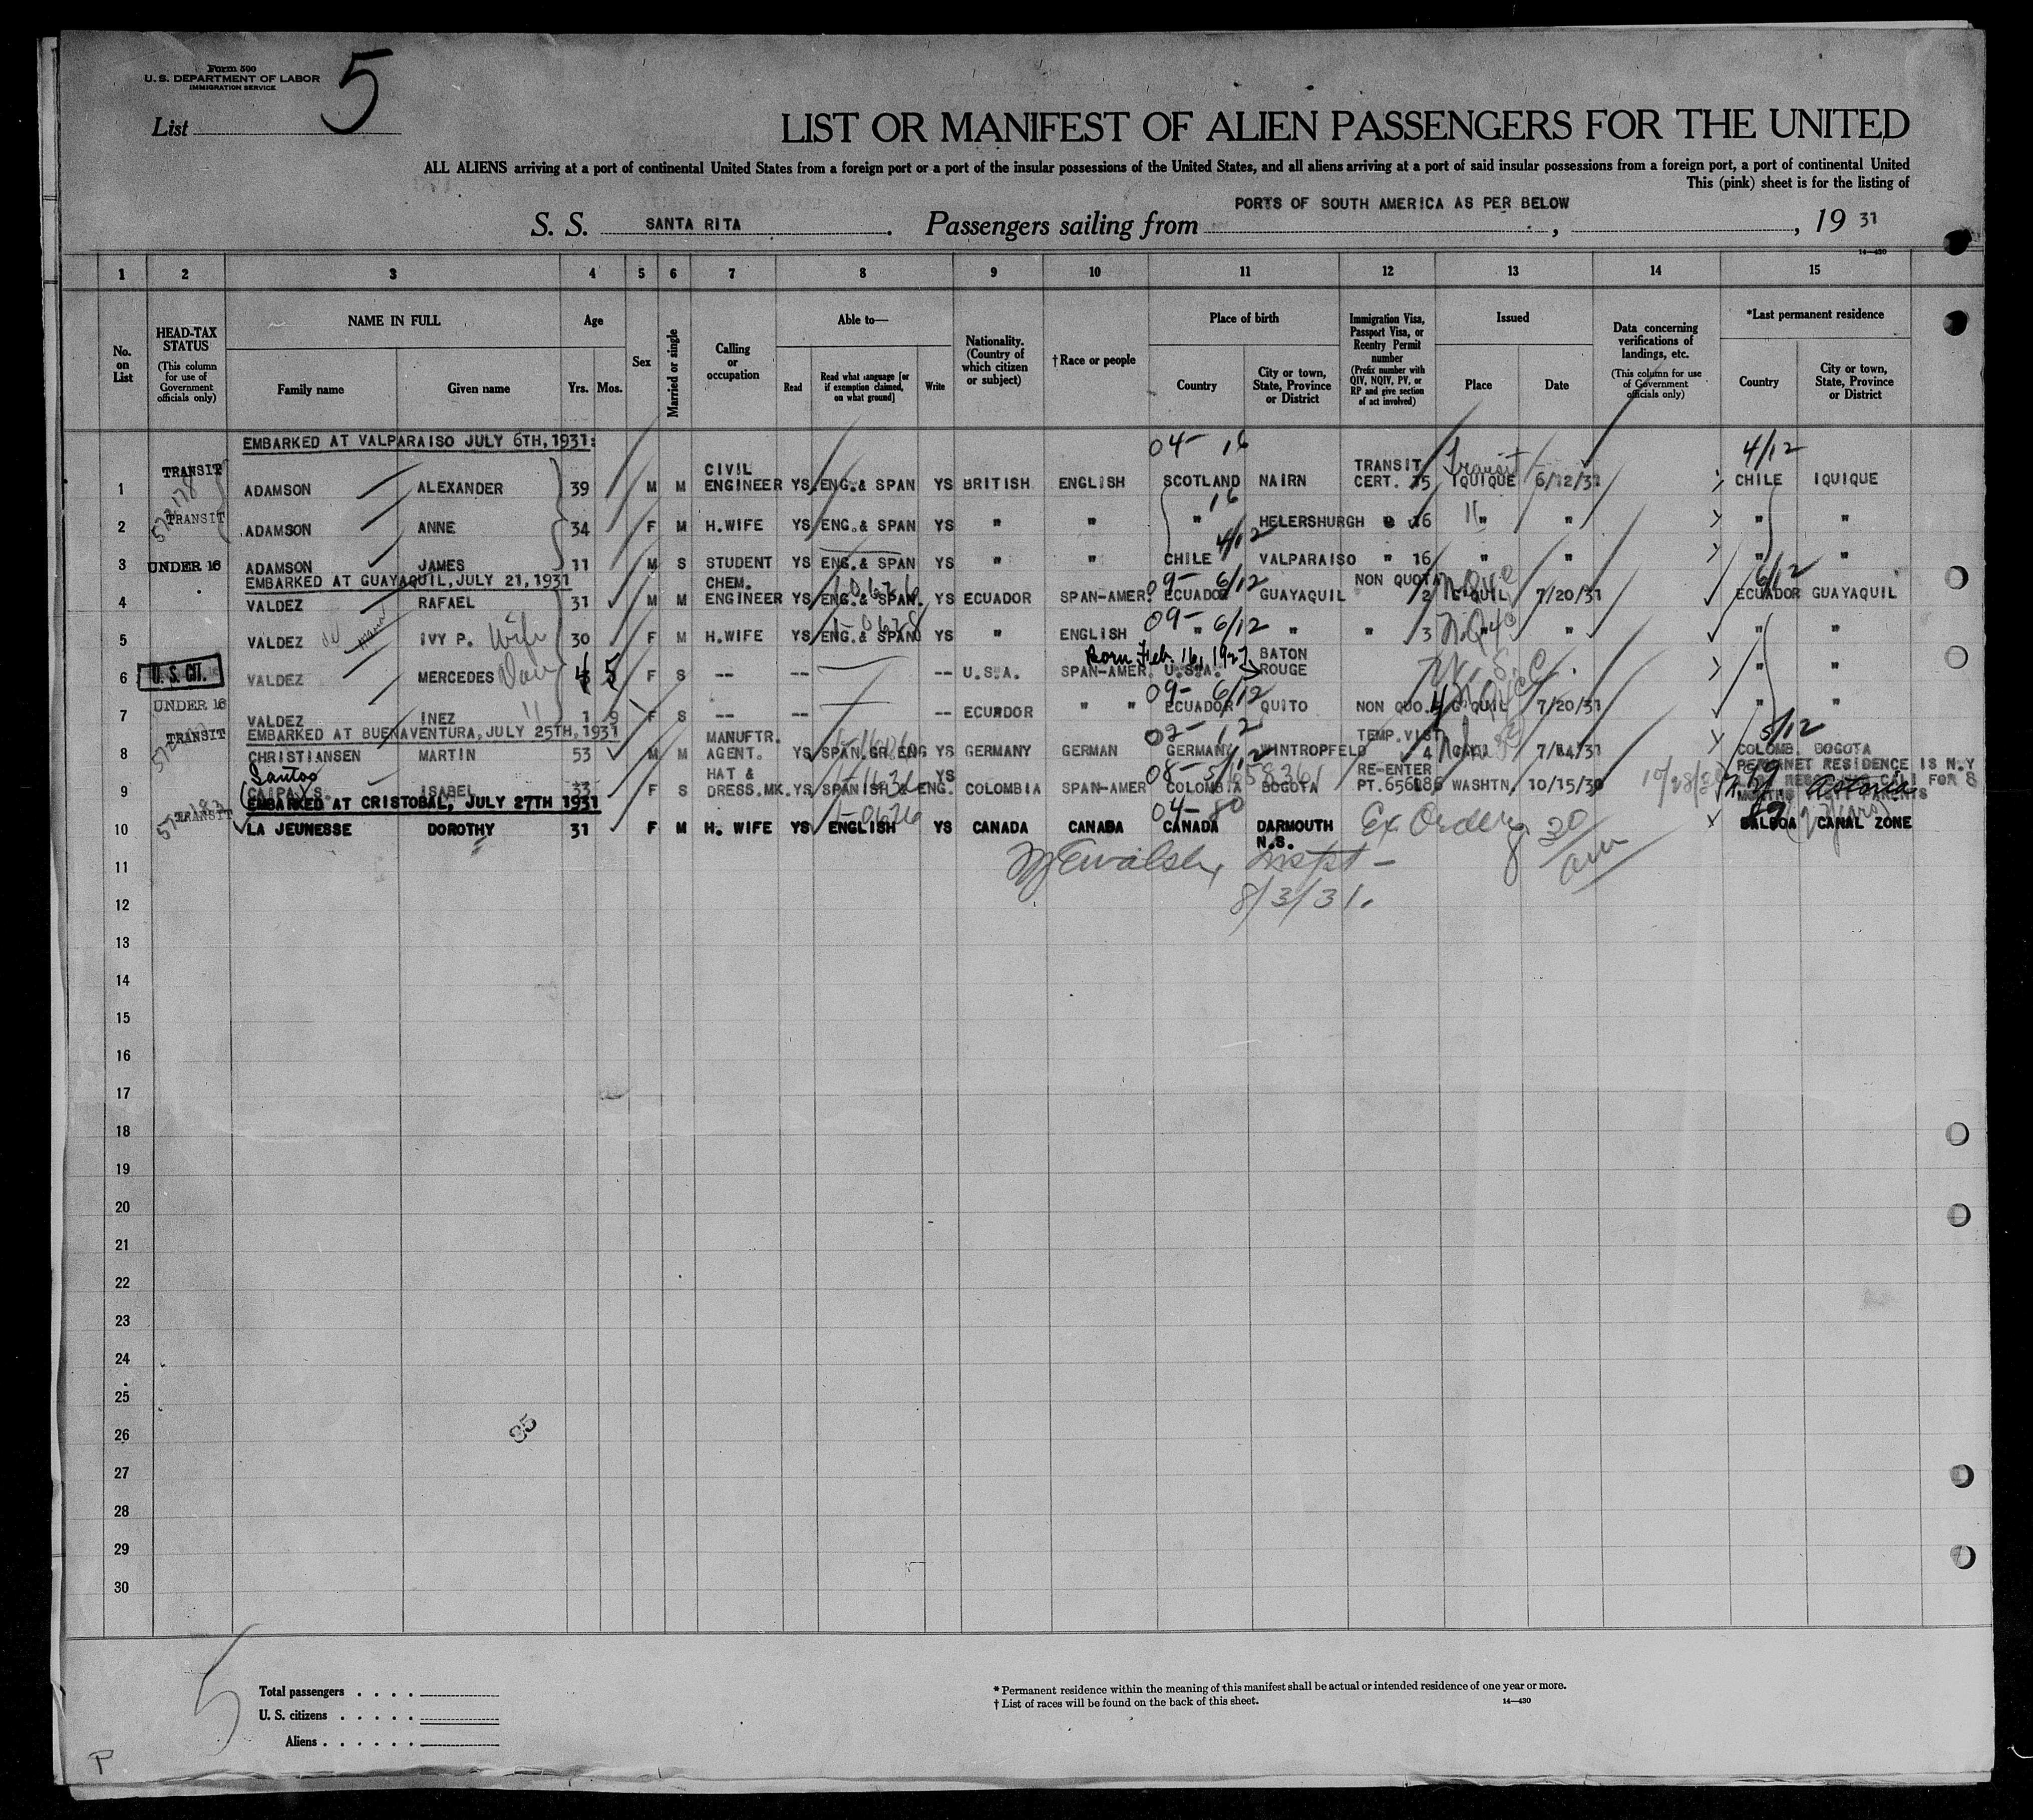 Form 500
U. S. DEPARTMENT OF LABOR
IMMIGRATION SERVICE
List 5
LIST OR MANIFEST OF ALIEN PASSENGERS FOR THE UNITED
ALL ALIENS arriving at a port of continental United States from a foreign port or a port of the insular possessions of the United States, and all aliens arriving at a port of said insular possessions from a foreign port, a port of continental United
This (pink) sheet is for the listing of
S. S. SANTA RITA. Passengers sailing from PORTS OF SOUTH AMERICA AS PER BELOW, , 19 31
14—430
1 2 3 4 5 6 7 8 9 10 11 12 13 14 15
No. on List
HEAD-TAX STATUS
(This column for use of Government officials only)
NAME IN FULL
Family name
Given name
Age
Yrs. Mos.
Sex
Married or single
Calling or occupation
Able to—
Read
Read what language [or if exemption claimed, on what ground]
Write
Nationality. (Country of which citizen or subject)
† Race or people
Place of birth
Country
City or town, State, Province or District
Immigration Visa, Passport Visa, or Reentry Permit number
(Prefix number with QIV, NQIV, PV, or RP and give section of act involved)
Issued
Place
Date
Data concerning verifications of landings, etc.
(This column for use of Government officials only)
*Last permanent residence
Country
City or town, State, Province or District
EMBARKED AT VALPARAISO JULY 6TH, 1931:
04- 16
4/12
1 TRANSIT ADAMSON ALEXANDER 39 M M CIVIL ENGINEER YS ENG.& SPAN YS BRITISH ENGLISH SCOTLAND NAIRN TRANSIT CERT. 15 Transit IQUIQUE 6/12/31 CHILE IQUIQUE
572178
16
2 TRANSIT ADAMSON ANNE 34 F M H.WIFE YS ENG.& SPAN YS " " " HELERSHURGH " 16 " " " "
4/12
3 UNDER 16 ADAMSON JAMES 11 M S STUDENT YS ENG.& SPAN YS " " CHILE VALPARAISO " 16 " " " "
EMBARKED AT GUAYAQUIL, JULY 21, 1931
09- 6/12
6/12
4 VALDEZ RAFAEL 31 M M CHEM. ENGINEER YS ENG.& SPAN. YS ECUADOR SPAN-AMER. ECUADOR GUAYAQUIL NON QUOTA 2 G'QUIL 7/20/31 ECUADOR GUAYAQUIL
09- 6/12
5 VALDEZ IVY P. Wife 30 F M H.WIFE YS ENG.& SPAN YS " ENGLISH " " " 3 " " " "
Born Feb. 16, 1927
6 U. S. CIT. VALDEZ MERCEDES Dau 4 5 F S -- -- -- U.S.A. SPAN-AMER. U.S.A. BATON ROUGE " "
09- 6/12
7 UNDER 16 VALDEZ INEZ " 1 9 F S -- -- -- ECUADOR " " ECUADOR QUITO NON QUO. 4 G'QUIL 7/20/31 " "
EMBARKED AT BUENAVENTURA, JULY 25TH, 1931
02- 12
5/12
8 TRANSIT CHRISTIANSEN MARTIN 53 M M MANUFTR. AGENT. YS SPAN.GR.ENG YS GERMANY GERMAN GERMANY WINTROPFELD TEMP.VIST 4 7/24/31 COLOMB. BOGOTA
Santos
08- 5/12
9 (CAIPA) S. ISABEL 33 F S HAT & DRESS.MK. YS SPANISH & ENG. YS COLOMBIA SPAN-AMER COLOMBIA BOGOTA RE-ENTER PT.656186 WASHTN. 10/15/30 PERMANET RESIDENCE IS N.Y CALI FOR 8 MONTHS PARENTS
Astoria
EMBARKED AT CRISTOBAL, JULY 27TH 1931
1-0676
04- 80
10 TRANSIT LA JEUNESSE DOROTHY 31 F M H. WIFE YS ENGLISH YS CANADA CANADA CANADA DARMOUTH N.S. Ex Order BALBOA CANAL ZONE
(2 years)
8 30 am
Walsh, Inspt -
8/3/31.
11
12
13
14
15
16
17
18
19
20
21
22
23
24
25
26
27
28
29
30
85
5
Total passengers . . . .
U. S. citizens . . . . .
Aliens . . . . . .
* Permanent residence within the meaning of this manifest shall be actual or intended residence of one year or more.
† List of races will be found on the back of this sheet.
14—430
P